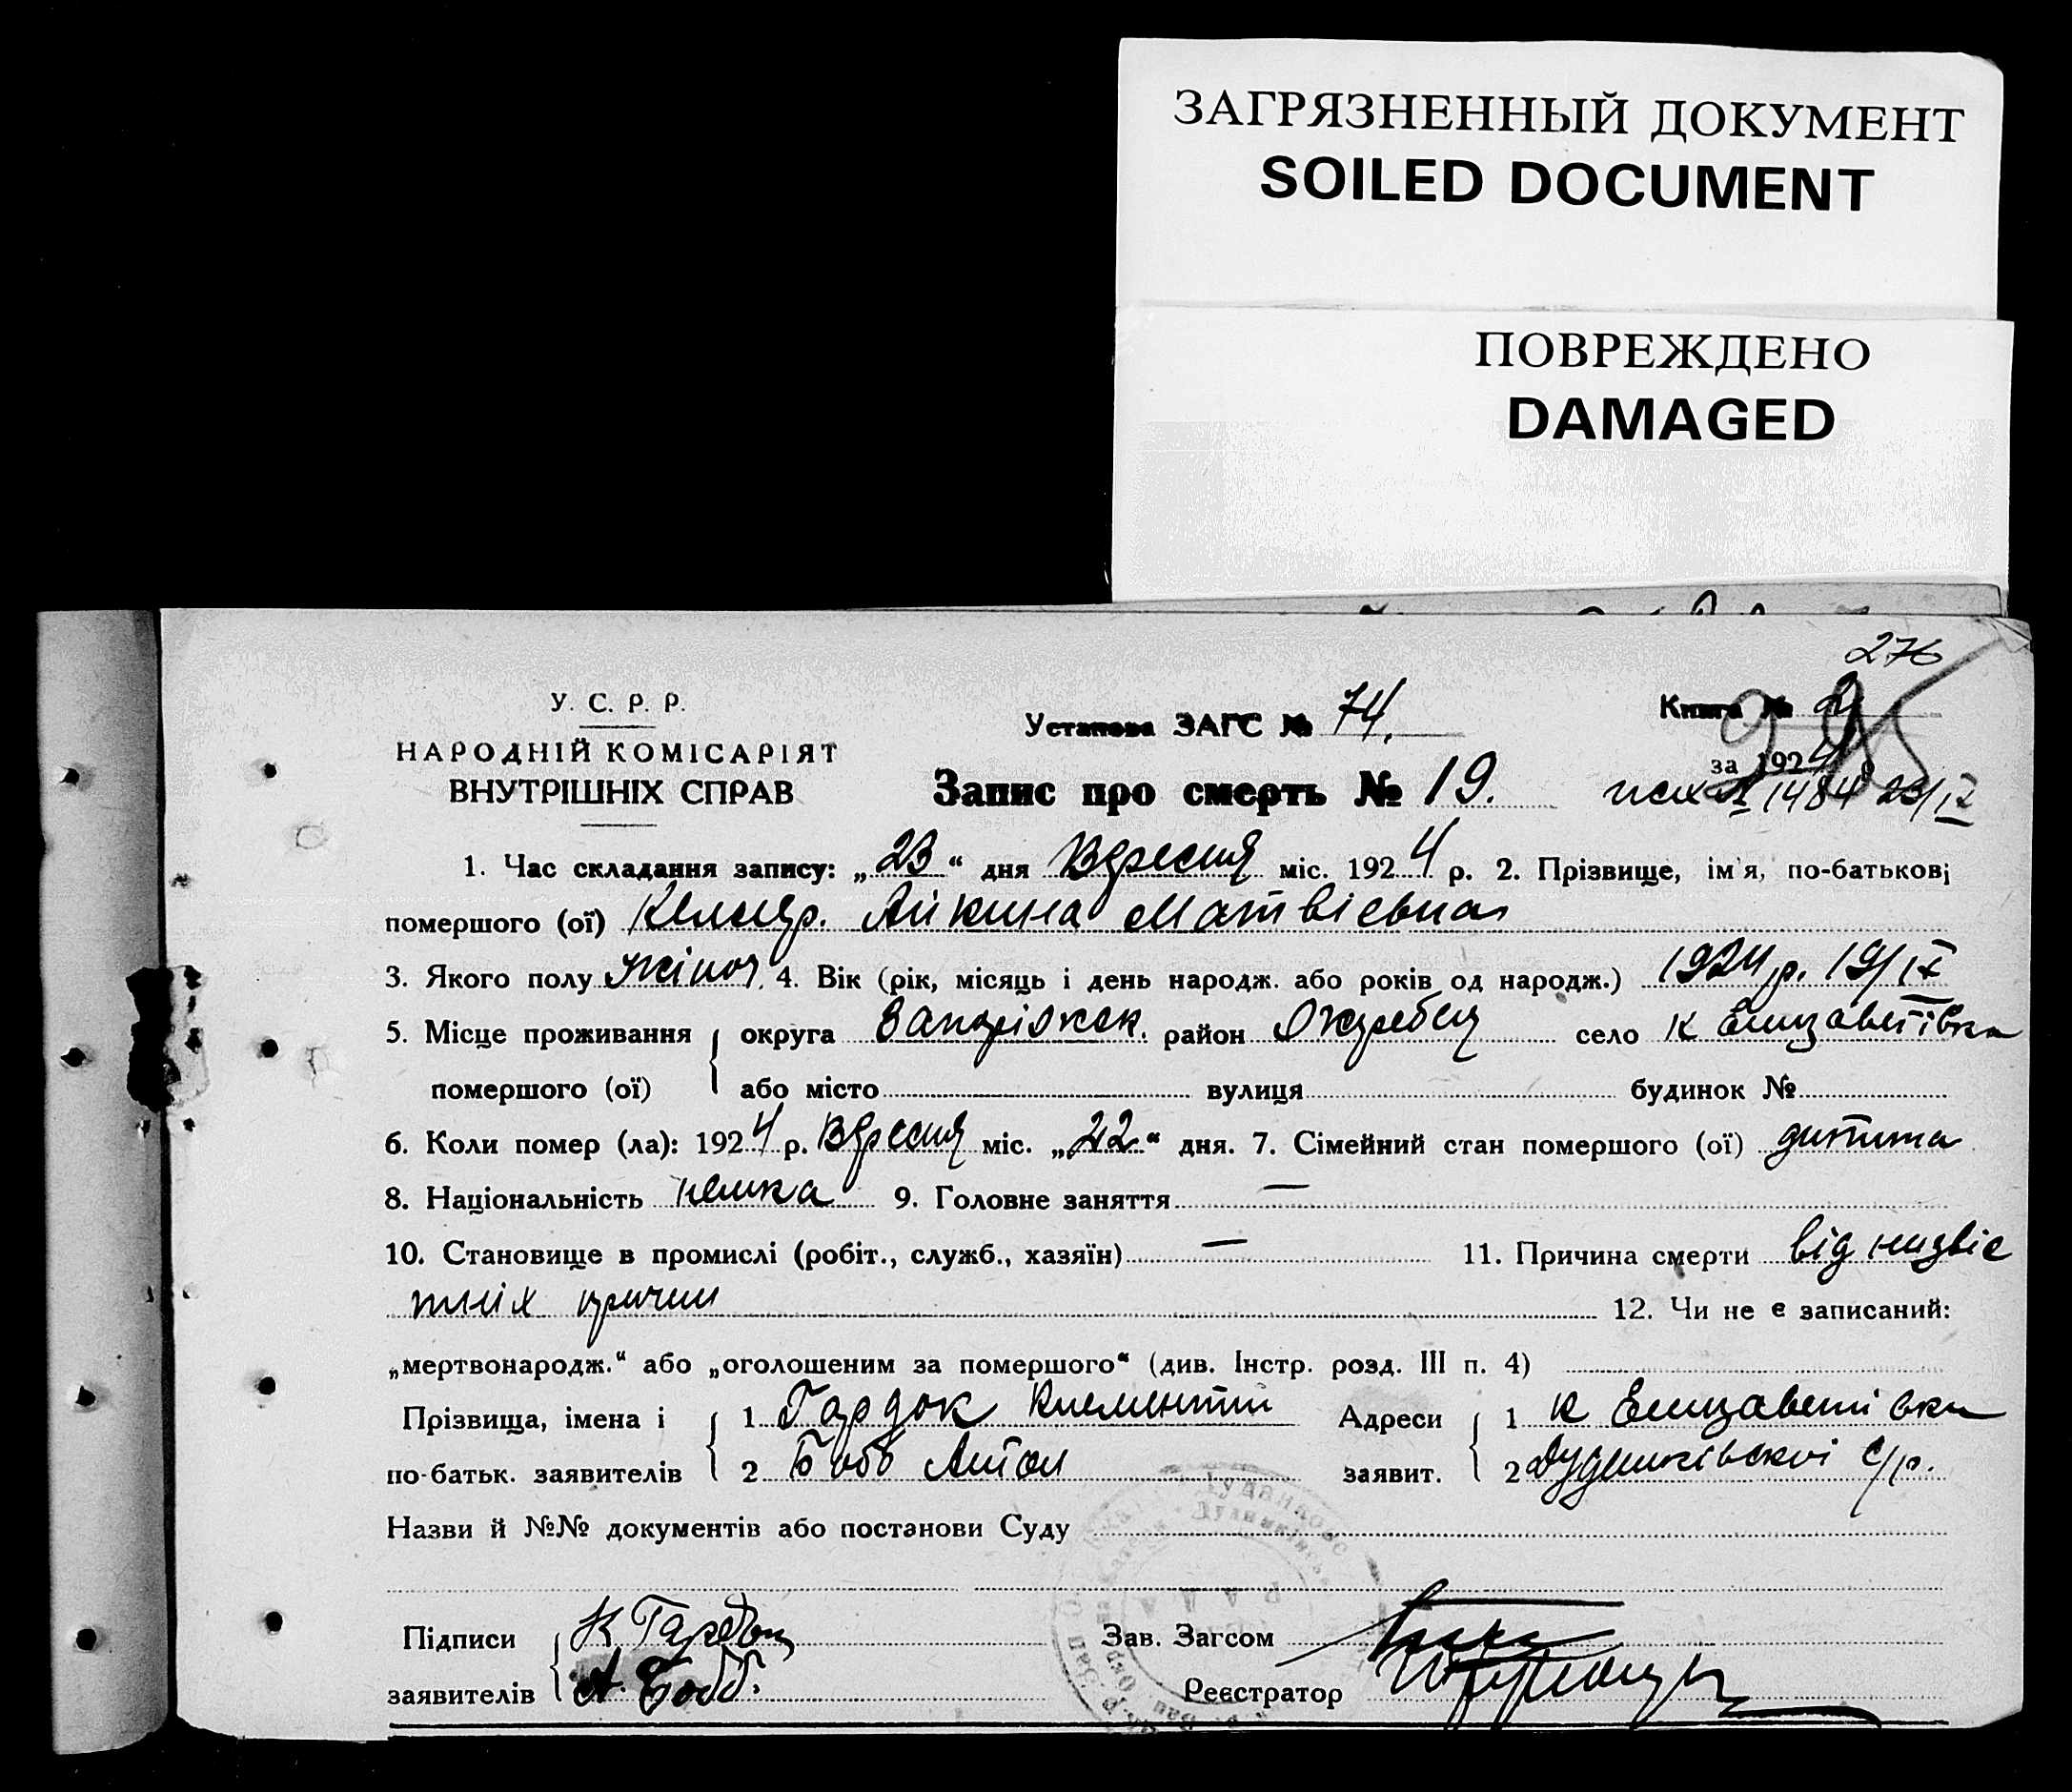 ЗАГРЯЗНЕННЫЙ ДОКУМЕНТ
SOILED DOCUMENT
ПОВРЕЖДЕНО
DAMAGED
276
У. С. Р. Р.
НАРОДНІЙ КОМІСАРІЯТ
ВНУТРІШНІХ СПРАВ
Установа ЗАГС № 74.
Книга № 2
295
за 1924
Запис про смерть № 19.
1484 23/IX
1. Час складання запису: „23“ дня Вересня міс. 1924 р. 2. Прізвище, ім'я, по-батькові
помершого (ої) Келлер. Матвієвна
3. Якого полу жіноч. 4. Вік (рік, місяць і день народж. або років од народж.) 1924 р. 19/IX
5. Місце проживання округа Запоріжск. район село к Елизаветівка
помершого (ої) або місто вулиця будинок №
6. Коли помер (ла): 1924 р. Вересня міс. „22“ дня. 7. Сімейний стан помершого (ої) дитина
8. Національність немка 9. Головне заняття —
10. Становище в промислі (робіт., служб., хазяїн) — 11. Причина смерти від низвіс
тних причин 12. Чи не є записаний:
„мертвонародж.“ або „оголошеним за помершого“ (див. Інстр. розд. III п. 4)
Прізвища, імена і 1 Гардок Климентий Адреси 1 к Елизаветівка
по-батьк. заявителів 2 Бобб Антон заявит. 2 с/р.
Назви й №№ документів або постанови Суду
РАДА
Підписи К Гардок Зав. Загсом
заявителів А. Бобб. Реєстратор